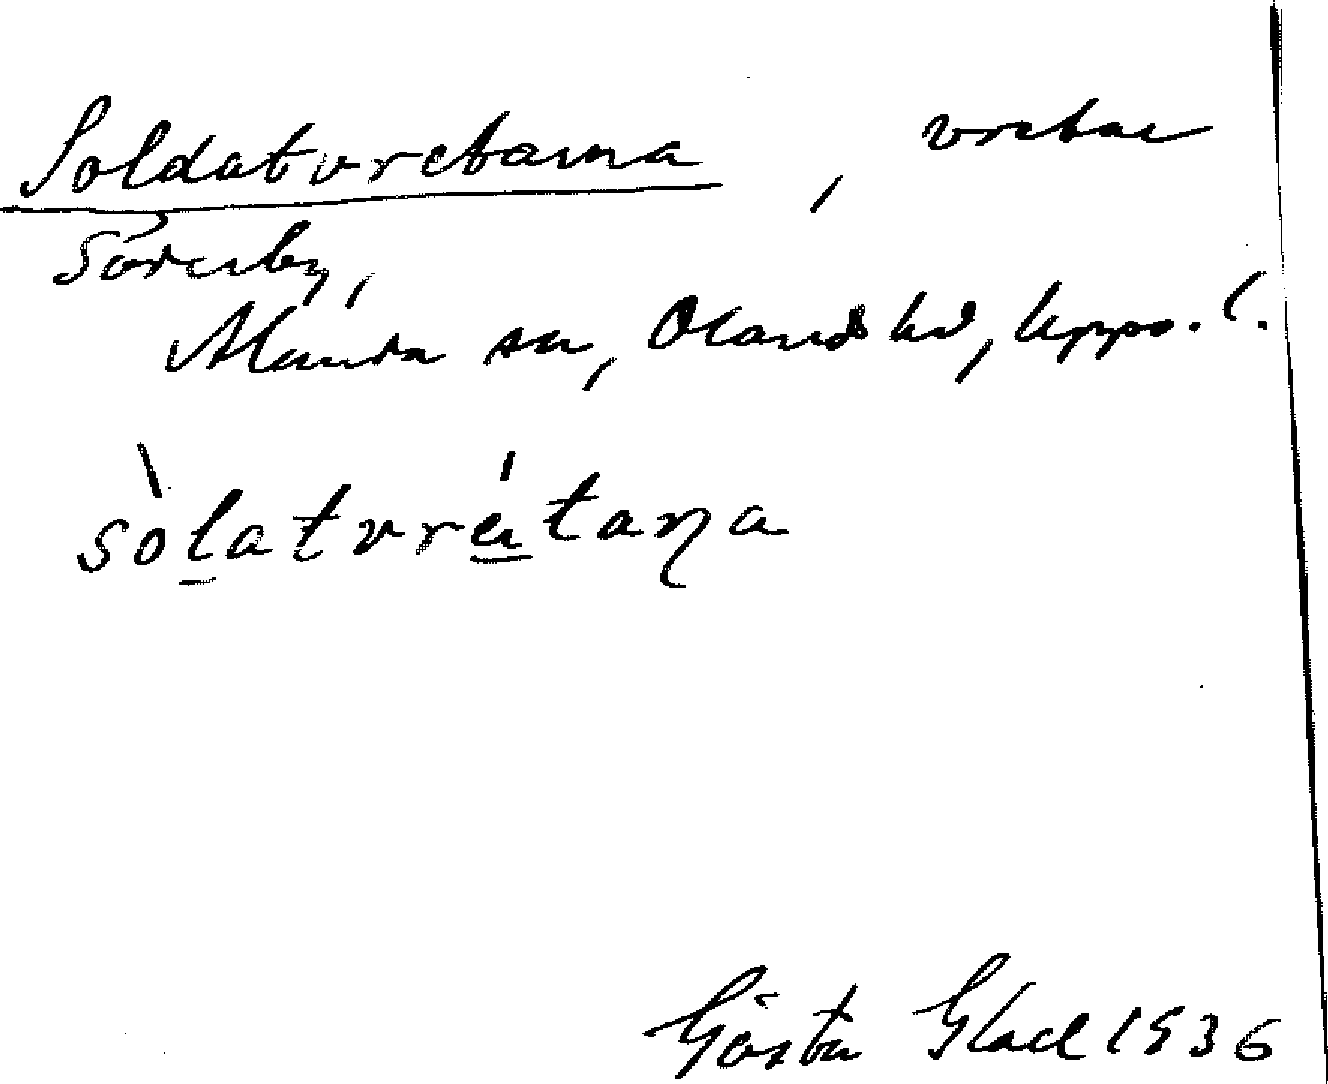 Soldatvretarna, vretar
Söverby,
Alunda sn, Olands hd, Upps. l.
sòlatvrétaṇa
Gösta Glad 1936